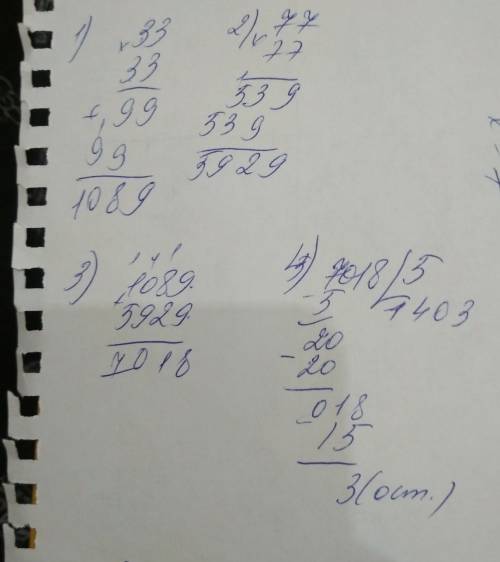 1) × 33
33
+ 99
99
1089
2) × 77
77
539
539
5929
3) 1 1 1
1089
5929
7018
4) 7018 | 5
- 5 1403
20
- 20
018
- 15
3 (ост.)